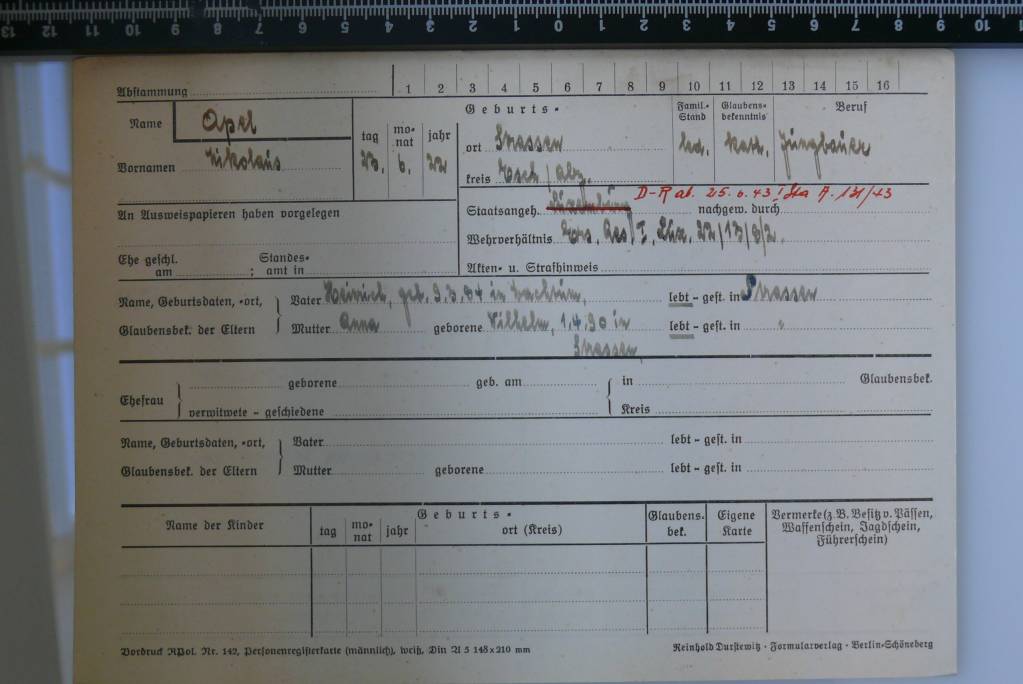 13 12 11 10 9 8 7 6 5 4 3 2 1 0 1 2 3 4 5 6 7 8 9 10
Abstammung 1 2 3 4 5 6 7 8 9 10 11 12 13 14 15 16
Name Apel
Vornamen Nikolaus
tag monat jahr
23. 6. 22
Geburts-
ort Strassen
kreis Esch / Alz.
Famil.-Stand led.
Glaubensbekenntnis kath.
Beruf Jungbauer
An Ausweispapieren haben vorgelegen
Staatsangeh. Luxemburg D-R ab. 25. 6. 43 nachgew. durch
Wehrverhältnis Ers. Res. I, Lüx. 22/13/8/2.
Ehe geschl. am ; Standesamt in
Akten- u. Strafhinweis
Name, Geburtsdaten, -ort, Glaubensbek. der Eltern
Vater Heinrich, geb. 9.3.84 in lebt - gest. in Strassen
Mutter Anna geborene Wilhelm, 1.4.90 in lebt - gest. in "
Strassen
Ehefrau
geborene geb. am in Glaubensbek.
verwitwete - geschiedene Kreis
Name, Geburtsdaten, -ort, Glaubensbek. der Eltern
Vater lebt - gest. in
Mutter geborene lebt - gest. in
Name der Kinder
Geburts-
tag monat jahr ort (Kreis)
Glaubensbek.
Eigene Karte
Vermerke (z. B. Besitz v. Pässen, Waffenschein, Jagdschein, Führerschein)
Vordruck RPol. Nr. 142, Personenregisterkarte (männlich), weiß, Din A 5 148 x 210 mm
Reinhold Durstewitz · Formularverlag · Berlin-Schöneberg